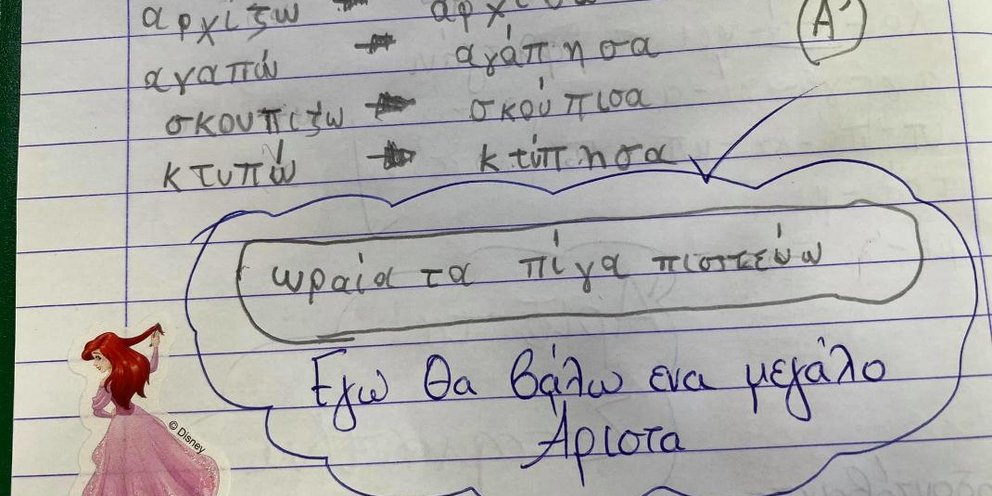 αρχίζω
Α'
αγαπώ → αγάπησα
σκουπίζω → σκούπισα
κτυπώ → κτύπησα
ωραία τα πίγα πιστεύω
Εγω θα βάλω ενα μεγάλο
Άριστα
© Disney